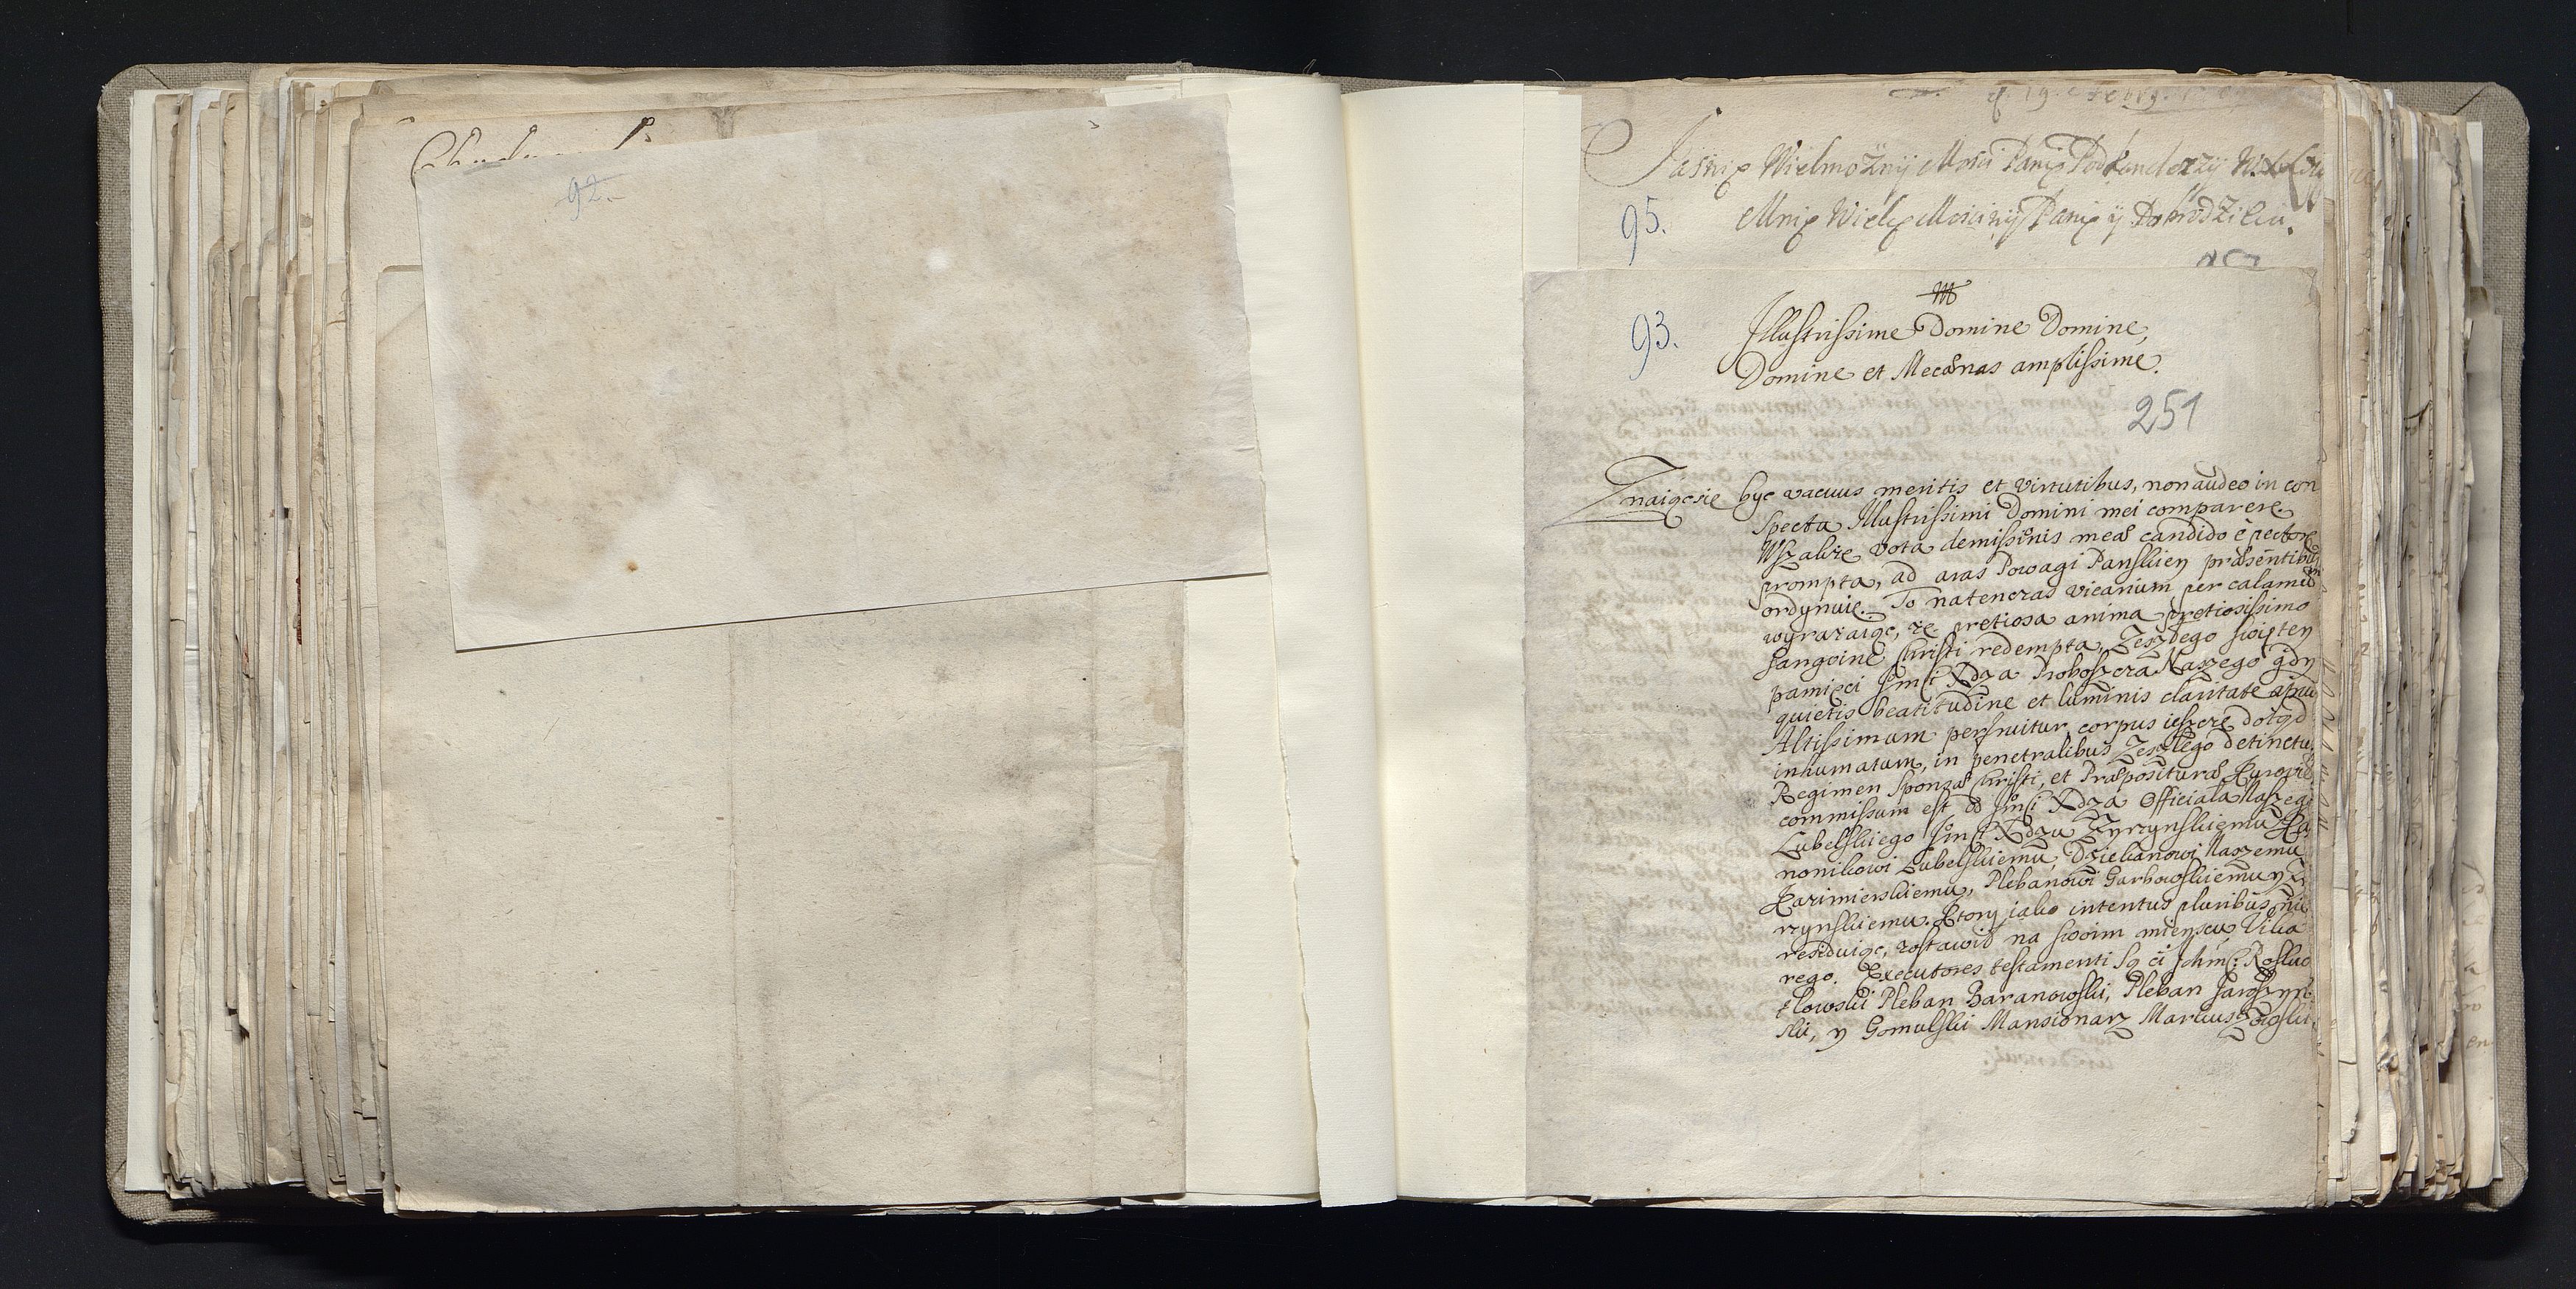 92.
Jaśnie Wielmożny Mści Panie Podkanclerzy
95.
Mnie Wielce Mościwy Panie y Dobrodzieiu.
93.
Illustrissime Domine Domine,
Domine et Mecænas amplissime.
251
Znaiącsie byc vacuus meritis et virtutibus, non audeo in con
spectu Illustrissimi Domini mei comparere
Wszakże vota demissionis meæ candido è pectore
prompta, ad aras Powagi Panskiey præsentibus
ordynuie. To natenczas vicarium per calamum
wyrazaiąc, ze pretiosa anima pretiosissimo
Sangvine Christi redempta, Zeszłego swiętey
pamięci Jmści Xdza Proboszcza Naszego gdy
quietis beatitudine et luminis claritate apud
Altissimum perfruitur, corpus ieszcze dotąd
inhumatum, in penetralibus Zeszłego detinetur
Regimen Sponsæ Christi, et Præpositaræ Kurovie
commissum est od Jmści Xdza Officiala Naszego
Lubelskiego Jmści Xdzu Zyrzynskiemu Ka
nonikowi Lubelskiemu, Dziekanowi Naszemu
Kazimierskiemu, Plebanowi Garbowskiemu y Zy
rzynskiemu. Ktory iako intentus pluribus nie
residuiąc, zostawił na swoim mieyscu Vika
rego. Executores testamenti są ci Ichmć: Kosluo
tłowski Pleban Baranowski, Pleban Jaroszyn
ski, y Gomulski Mansionarz Markuszowski.